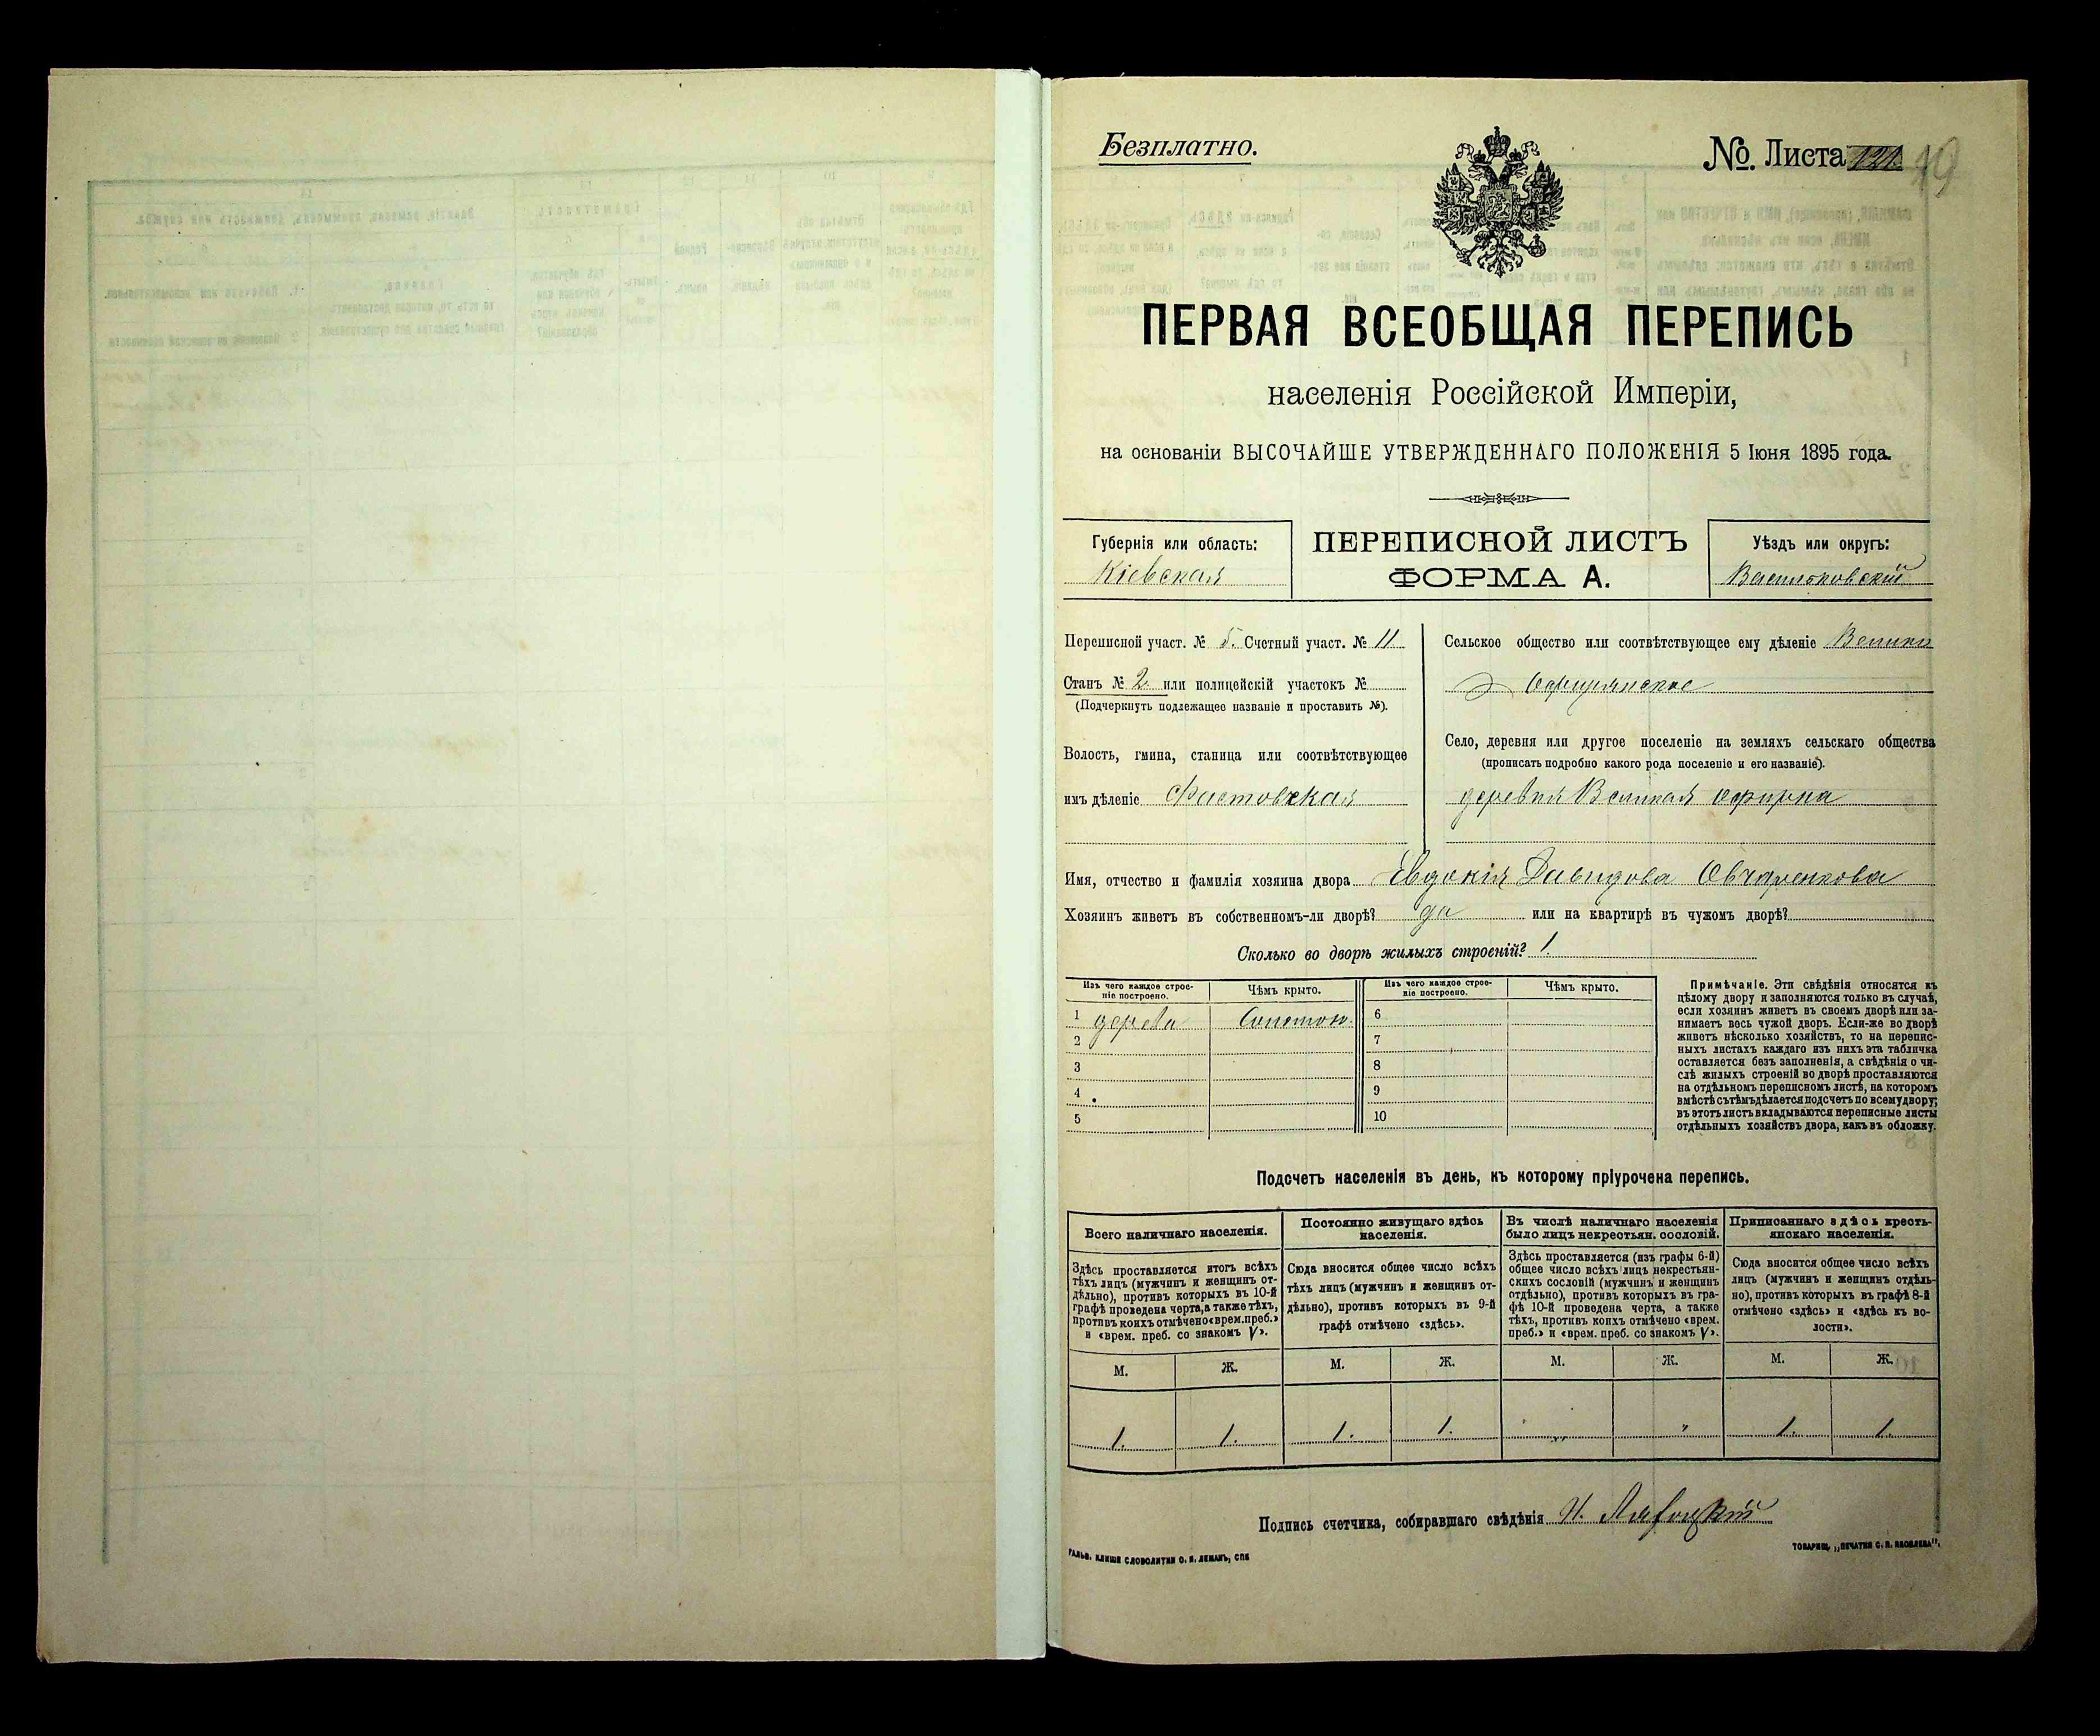 Безплатно.
№ Листа 121. 19
ПЕРВАЯ ВСЕОБЩАЯ ПЕРЕПИСЬ
населенія Россійской Имперіи,
на основаніи ВЫСОЧАЙШЕ УТВЕРЖДЕННАГО ПОЛОЖЕНІЯ 5 Іюня 1895 года.
Губернія или область:
Кіевская
ПЕРЕПИСНОЙ ЛИСТЪ
ФОРМА А.
Уѣздъ или округъ:
Васильковскій
Переписной участ. № 5. Счетный участ. № 11.
Станъ № 2 или полицейскій участокъ №
(Подчеркнуть подлежащее названіе и проставить №).
Волость, гмина, станица или соотвѣтствующее
имъ дѣленіе Фастовская
Сельское общество или соотвѣтствующее ему дѣленіе Велико
Офирнянское
Село, деревня или другое поселеніе на земляхъ сельскаго общества
(прописать подробно какого рода поселеніе и его названіе).
деревня Великая Офирна
Имя, отчество и фамилія хозяина двора Евдокія Давидова Овчаренкова
Хозяинъ живетъ въ собственномъ-ли дворѣ? да или на квартирѣ въ чужомъ дворѣ?
Сколько во дворѣ жилыхъ строеній? 1.
Изъ чего каждое строе-
ніе построено.
Чѣмъ крыто.
Изъ чего каждое строе-
ніе построено.
Чѣмъ крыто.
1 дерева Соломою. 6
2 7
3 8
4 9
5 10
Примѣчаніе. Эти свѣдѣнія относятся къ
цѣлому двору и заполняются только въ случаѣ,
если хозяинъ живетъ въ своемъ дворѣ или за-
нимаетъ весь чужой дворъ. Если-же во дворѣ
живетъ нѣсколько хозяйствъ, то на перепис-
ныхъ листахъ каждаго изъ нихъ эта табличка
оставляется безъ заполненія, а свѣдѣнія о чи-
слѣ жилыхъ строеній во дворѣ проставляются
на отдѣльномъ переписномъ листѣ, на которомъ
вмѣстѣ съ тѣмъ дѣлается подсчетъ по всему двору;
въ этотъ листъ вкладываются переписные листы
отдѣльныхъ хозяйствъ двора, какъ въ обложку.
Подсчетъ населенія въ день, къ которому пріурочена перепись.
Всего наличнаго населенія.
Здѣсь проставляется итогъ всѣхъ
тѣхъ лицъ (мужчинъ и женщинъ от-
дѣльно), противъ которыхъ въ 10-й
графѣ проведена черта, а также тѣхъ,
противъ коихъ отмѣчено «врем. преб.»
и «врем. преб. со знакомъ V».
Постоянно живущаго здѣсь
населенія.
Сюда вносится общее число всѣхъ
тѣхъ лицъ (мужчинъ и женщинъ от-
дѣльно), противъ которыхъ въ 9-й
графѣ отмѣчено «здѣсь».
Въ числѣ наличнаго населенія
было лицъ некрестьян. сословій.
Здѣсь проставляется (изъ графы 6-й)
общее число всѣхъ лицъ некрестьян-
скихъ сословій (мужчинъ и женщинъ
отдѣльно), противъ которыхъ въ гра-
фѣ 10-й проведена черта, а также
тѣхъ, противъ коихъ отмѣчено «врем.
преб.» и «врем. преб. со знакомъ V».
Приписаннаго здѣсь кресть-
янскаго населенія.
Сюда вносится общее число всѣхъ
лицъ (мужчинъ и женщинъ отдѣль-
но), противъ которыхъ въ графѣ 8-й
отмѣчено «здѣсь» и «здѣсь къ во-
лости».
М. Ж. М. Ж. М. Ж. М. Ж.
1. 1. 1. 1. " " 1. 1.
Подпись счетчика, собиравшаго свѣдѣнія И.
ГАЛЬВ. КЛИШЕ СЛОВОЛИТНИ О. И. ЛЕМАНЪ, СПБ
ТОВАРИЩ. „ПЕЧАТНЯ С. П. ЯКОВЛЕВА".